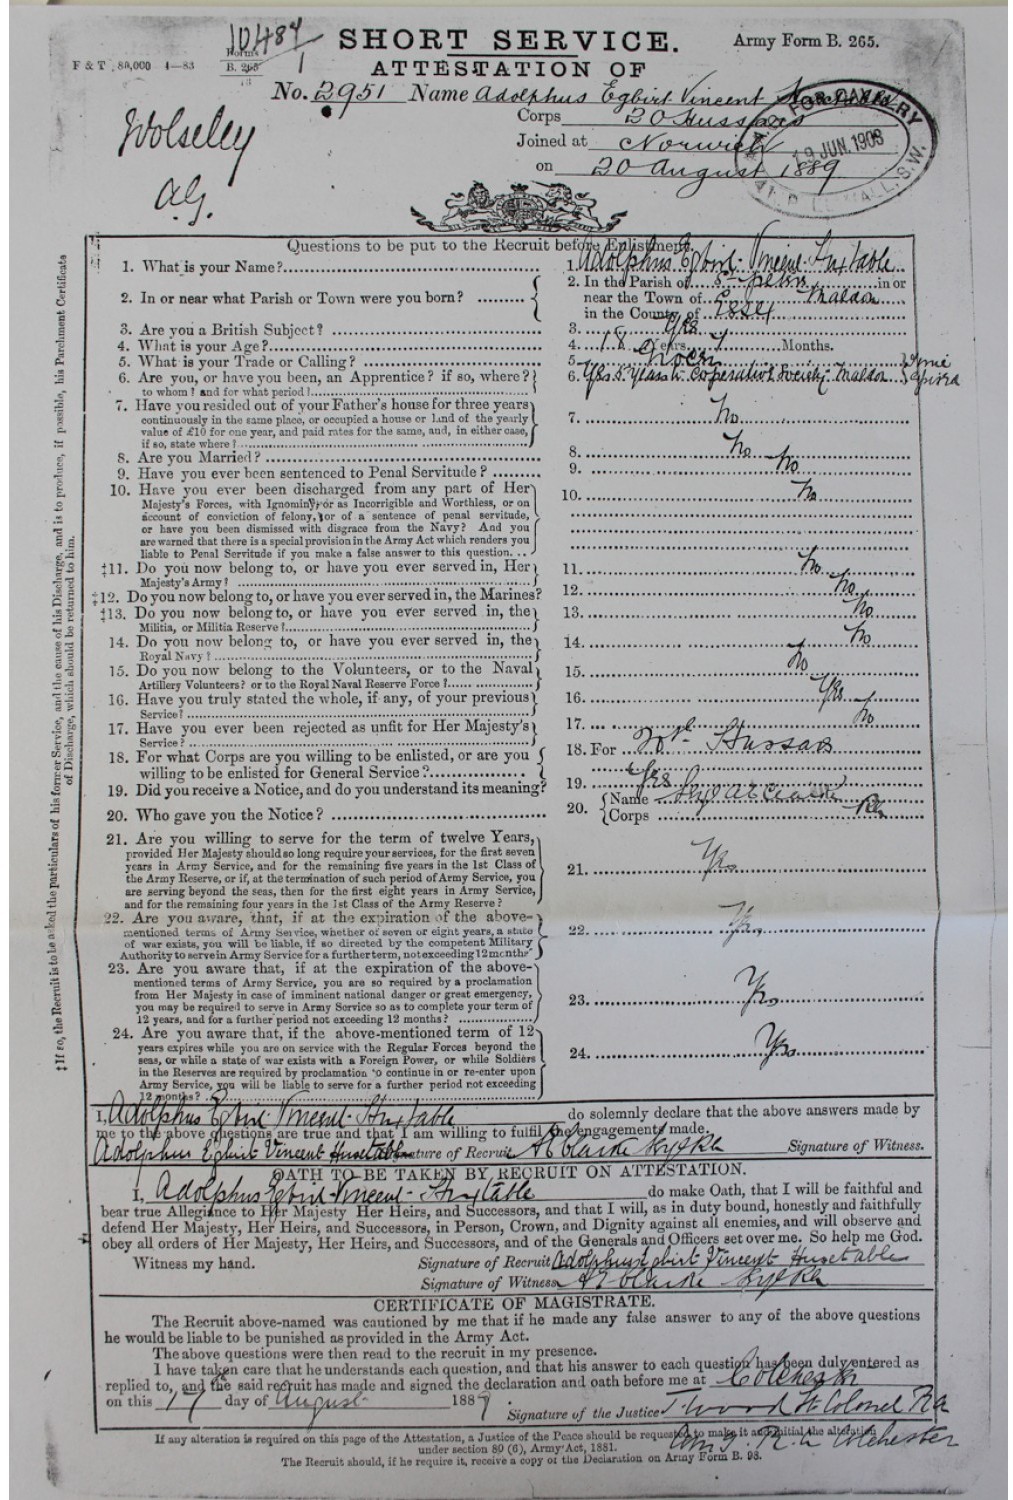 10484
1
Forms
B. 265
F & T. 80,000 4—83
SHORT SERVICE.
Army Form B. 265.
ATTESTATION OF
No. 2951 Name Adolphus Egbirt Vincent
Corps 20 Hussars
Joined at Norwich
on 20 August 1889
FOR CAVALRY
19 JUN. 1903
41, PALL MALL, S.W.
Wolseley
A.G.
Questions to be put to the Recruit before Enlistment.
1. What is your Name? 1. Adolphus Egbirt Vincent Huxtable
2. In or near what Parish or Town were you born? 2. In the Parish of St Peters in or
near the Town of Maldon
in the County of Essex
3. Are you a British Subject? 3. Yes
4. What is your Age? 4. 18 Years Months.
5. What is your Trade or Calling? 5. Grocer
6. Are you, or have you been, an Apprentice? if so, where? 6. Yes 5 Years Coperative Society Maldon Time
to whom? and for what period? Expired
7. Have you resided out of your Father's house for three years 7. No
continuously in the same place, or occupied a house or land of the yearly
value of £10 for one year, and paid rates for the same, and, in either case,
if so, state where?
8. Are you Married? 8. No
9. Have you ever been sentenced to Penal Servitude? 9. No
10. Have you ever been discharged from any part of Her 10. No
Majesty's Forces, with Ignominy, or as Incorrigible and Worthless, or on
account of conviction of felony, or of a sentence of penal servitude,
or have you been dismissed with disgrace from the Navy? And you
are warned that there is a special provision in the Army Act which renders you
liable to Penal Servitude if you make a false answer to this question...
‡11. Do you now belong to, or have you ever served in, Her 11. No
Majesty's Army?
‡12. Do you now belong to, or have you ever served in, the Marines? 12. No
‡13. Do you now belong to, or have you ever served in, the 13. No
Militia, or Militia Reserve?
14. Do you now belong to, or have you ever served in, the 14. No
Royal Navy?
15. Do you now belong to the Volunteers, or to the Naval 15. No
Artillery Volunteers? or to the Royal Naval Reserve Force?
16. Have you truly stated the whole, if any, of your previous 16. Yes
Service?
17. Have you ever been rejected as unfit for Her Majesty's 17. No
Service?
18. For what Corps are you willing to be enlisted, or are you 18. For 20th Hussars
willing to be enlisted for General Service?
19. Did you receive a Notice, and do you understand its meaning? 19. Yes
20. Who gave you the Notice? 20. Name
Corps RA
21. Are you willing to serve for the term of twelve Years, 21. Yes
provided Her Majesty should so long require your services, for the first seven
years in Army Service, and for the remaining five years in the 1st Class of
the Army Reserve, or if, at the termination of such period of Army Service, you
are serving beyond the seas, then for the first eight years in Army Service,
and for the remaining four years in the 1st Class of the Army Reserve?
22. Are you aware, that, if at the expiration of the above- 22. Yes
mentioned terms of Army Service, whether of seven or eight years, a state
of war exists, you will be liable, if so directed by the competent Military
Authority to serve in Army Service for a further term, not exceeding 12 months?
23. Are you aware that, if at the expiration of the above- 23. Yes
mentioned terms of Army Service, you are so required by a proclamation
from Her Majesty in case of imminent national danger or great emergency,
you may be required to serve in Army Service so as to complete your term of
12 years, and for a further period not exceeding 12 months?
24. Are you aware that, if the above-mentioned term of 12 24. Yes
years expires while you are on service with the Regular Forces beyond the
seas, or while a state of war exists with a Foreign Power, or while Soldiers
in the Reserves are required by proclamation to continue in or re-enter upon
Army Service, you will be liable to serve for a further period not exceeding
12 months?
I, Adolphus Egbirt Vincent Huxtable do solemnly declare that the above answers made by
me to the above questions are true and that I am willing to fulfil the engagements made.
Adolphus Egbirt Vincent Huxetable Signature of Recruit Signature of Witness.
OATH TO BE TAKEN BY RECRUIT ON ATTESTATION.
I, Adolphus Egbirt Vincent Huxtable do make Oath, that I will be faithful and
bear true Allegiance to Her Majesty Her Heirs, and Successors, and that I will, as in duty bound, honestly and faithfully
defend Her Majesty, Her Heirs, and Successors, in Person, Crown, and Dignity against all enemies, and will observe and
obey all orders of Her Majesty, Her Heirs, and Successors, and of the Generals and Officers set over me. So help me God.
Witness my hand. Signature of Recruit Adolphus Egbirt Vincent Huxetable
Signature of Witness
CERTIFICATE OF MAGISTRATE.
The Recruit above-named was cautioned by me that if he made any false answer to any of the above questions
he would be liable to be punished as provided in the Army Act.
The above questions were then read to the recruit in my presence.
I have taken care that he understands each question, and that his answer to each question has been duly entered as
replied to, and the said recruit has made and signed the declaration and oath before me at Colchester
on this 17 day of August 1889
Signature of the Justice J Wood Lt Colonel RA
R.A. Colchester
If any alteration is required on this page of the Attestation, a Justice of the Peace should be requested to make it and initial the alteration
under section 80 (6), Army Act, 1881.
The Recruit should, if he require it, receive a copy of the Declaration on Army Form B. 98.
‡If so, the Recruit is to be asked the particulars of his former Service, and the cause of his Discharge, and is to produce, if possible, his Parchment Certificate
of Discharge, which should be returned to him.